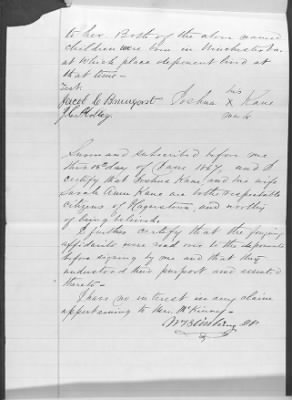 to her. Both of the above named
children were born in Winchester Va.
at which place deponent lived at
that time—
Test. his
Jacob C Bumgart Joshua X Kane
mark
Sworn and subscribed before me
this day of June 1867, and I
certify that Joshua Kane, and his wife
Sarah Ann Kane are both respectable
citizens of Hagerstown, and worthy
of being believed.
I further certify that the forgoing
affidavits were read over to the deponents
before signing by me and that they
understood their purport and assented
thereto—
I have no interest in any claim
appertaining to Mrs. McKinney—